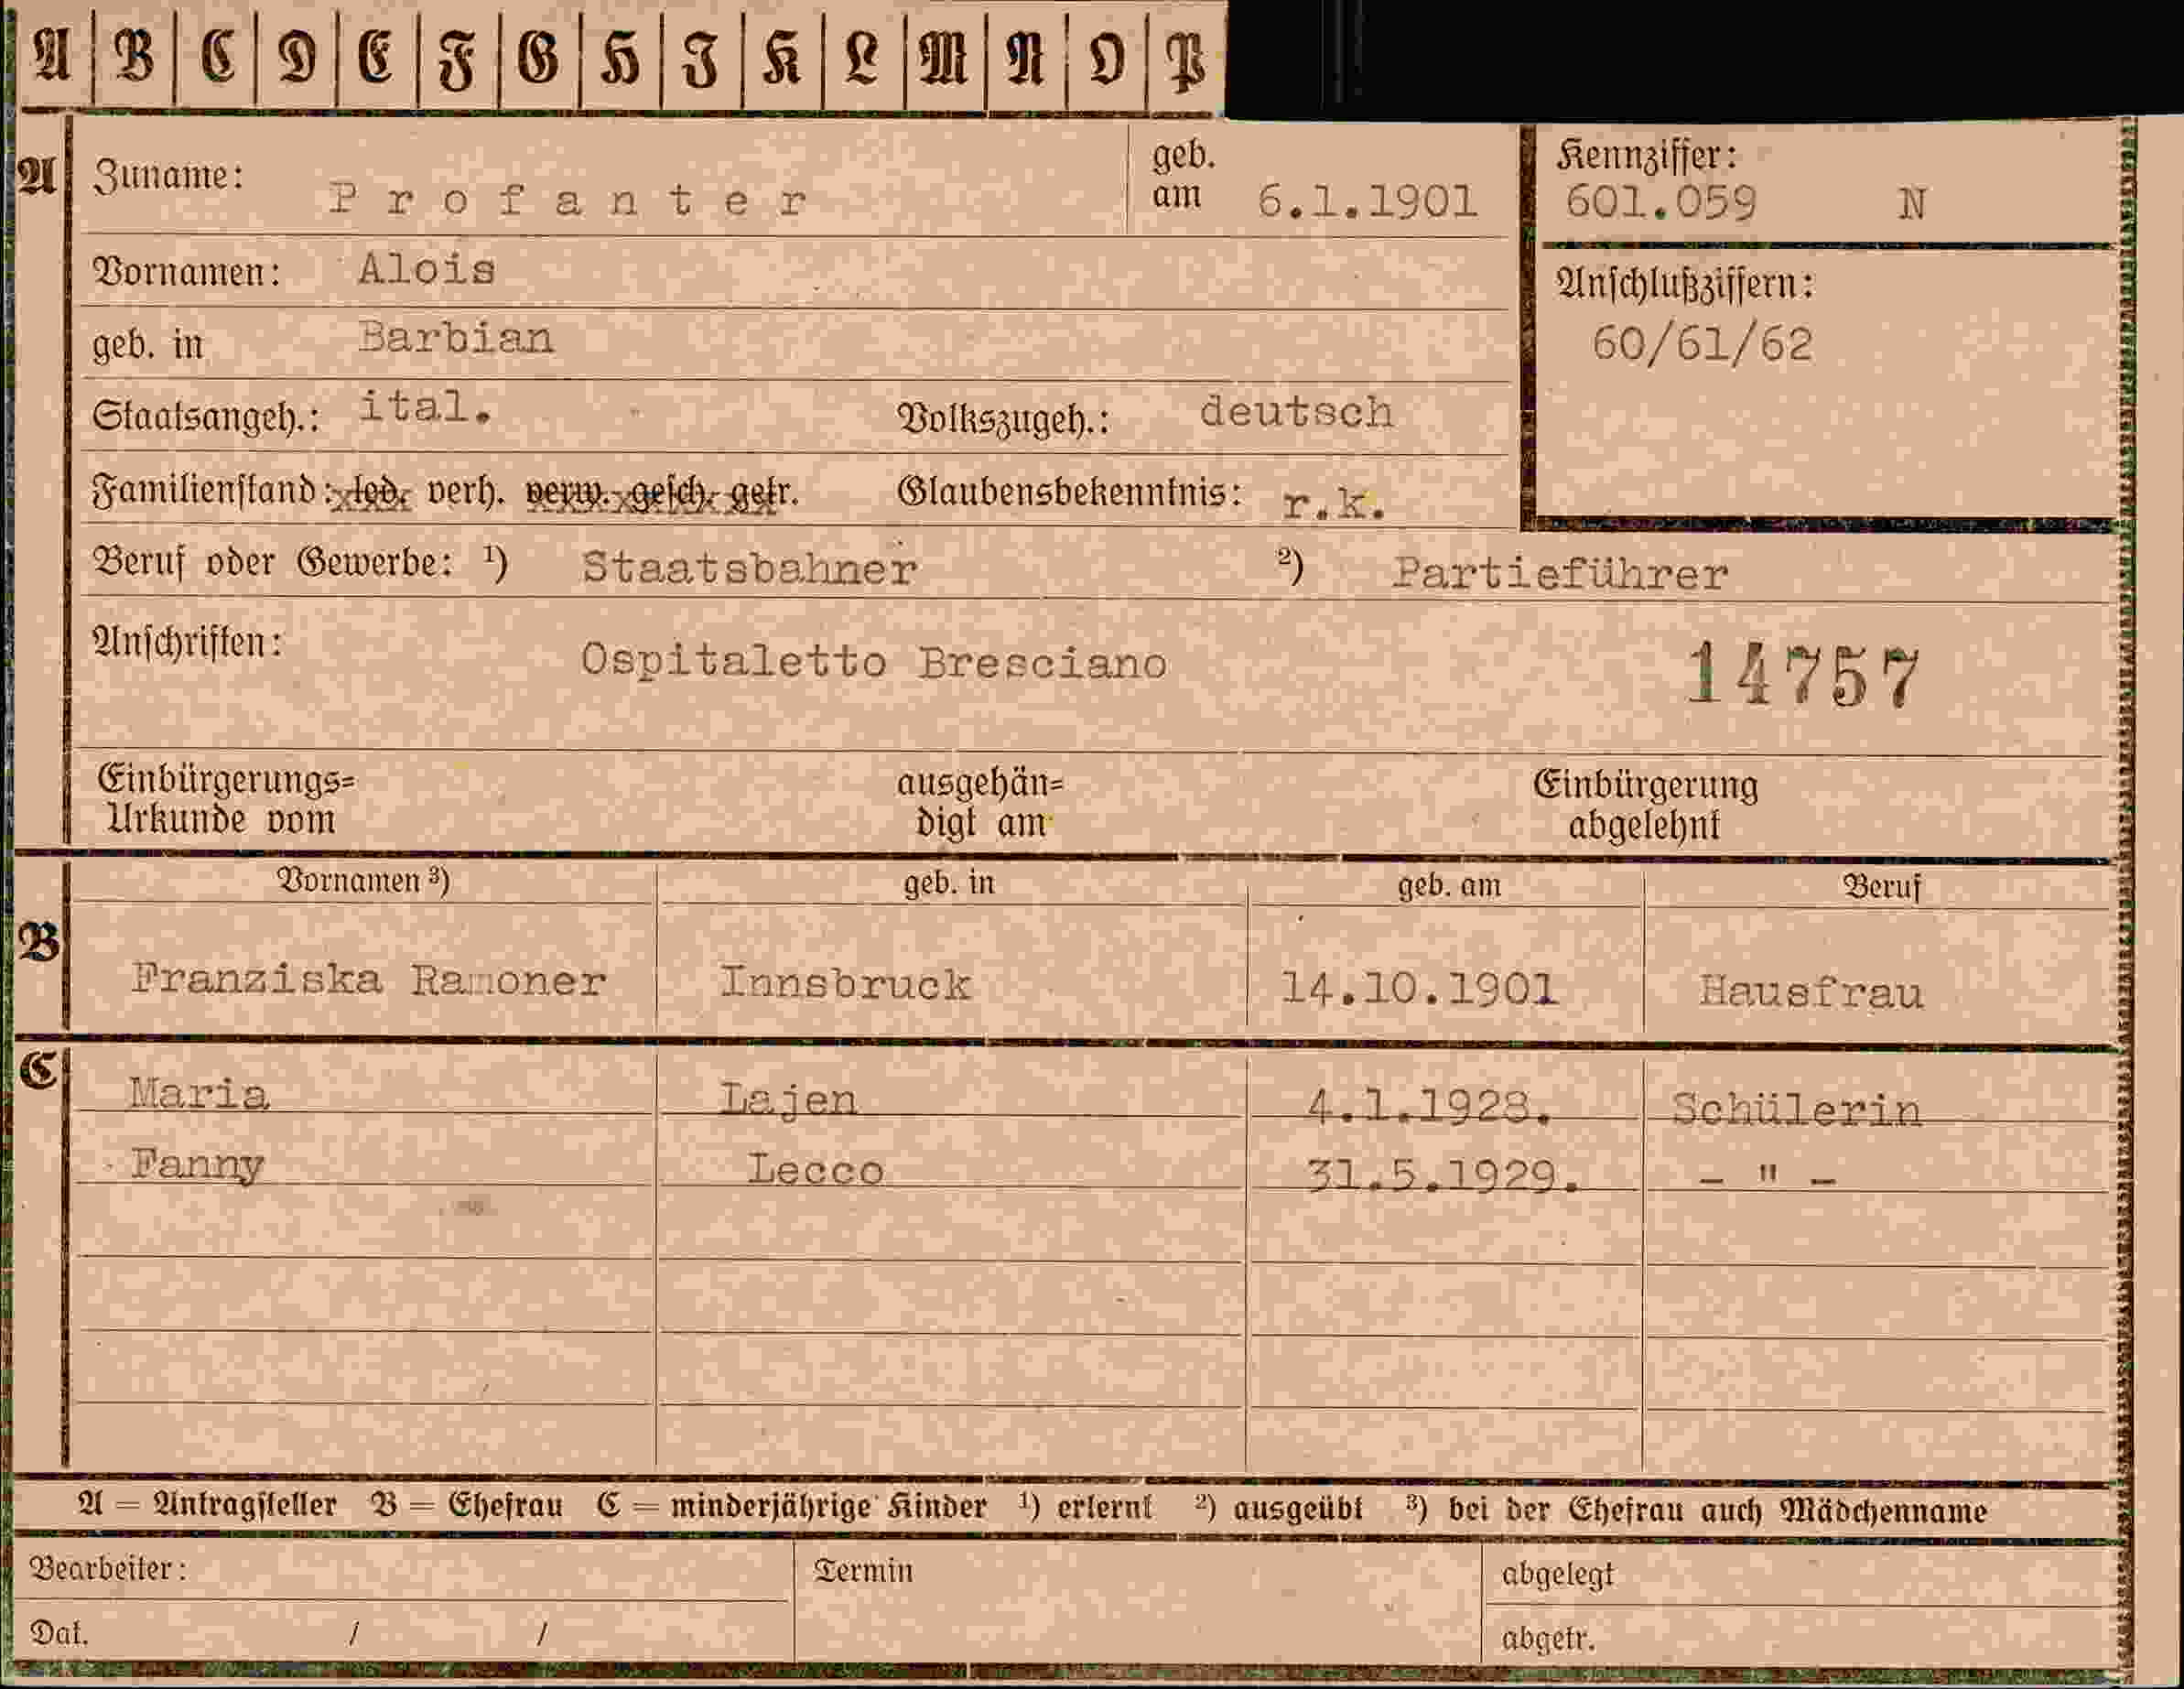 A B C D E F G H I K L M N O P
A Zuname: Profanter geb. am 6.1.1901 Kennziffer: 601.059 N
Vornamen: Alois Anschlußziffern:
geb. in Barbian 60/61/62
Staatsangeh.: ital. Volkszugeh.: deutsch
Familienstand: led. verh. verw. gesch. getr. Glaubensbekenntnis: r.k.
Beruf oder Gewerbe: ¹) Staatsbahner ²) Partieführer
Anschriften: Ospitaletto Bresciano 14757
Einbürgerungs= ausgehän= Einbürgerung
Urkunde vom digt am abgelehnt
Vornamen ³) geb. in geb. am Beruf
B Franziska Ramoner Innsbruck 14.10.1901 Hausfrau
C Maria Lajen 4.1.1928. Schülerin
Fanny Lecco 31.5.1929. – " –
A = Antragsteller B = Ehefrau C = minderjährige Kinder ¹) erlernt ²) ausgeübt ³) bei der Ehefrau auch Mädchenname
Bearbeiter: Termin abgelegt
Dat. / / abgetr.